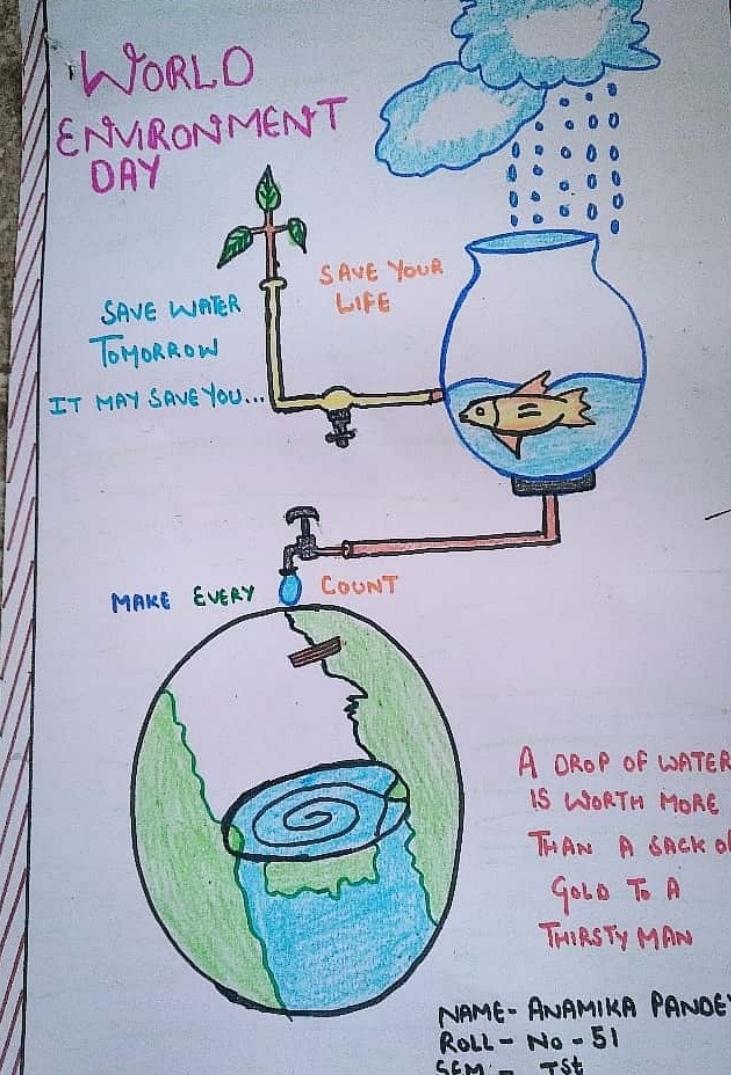 WORLD
ENVIRONMENT
DAY
SAVE YOUR
LIFE
SAVE WATER
TOMORROW
IT MAY SAVE YOU...
MAKE EVERY COUNT
A DROP OF WATER
IS WORTH MORE
THAN A SACK O
GOLD TO A
THIRSTY MAN
NAME- ANAMIKA PANDEY
ROLL- NO - 51
SEM - Ist